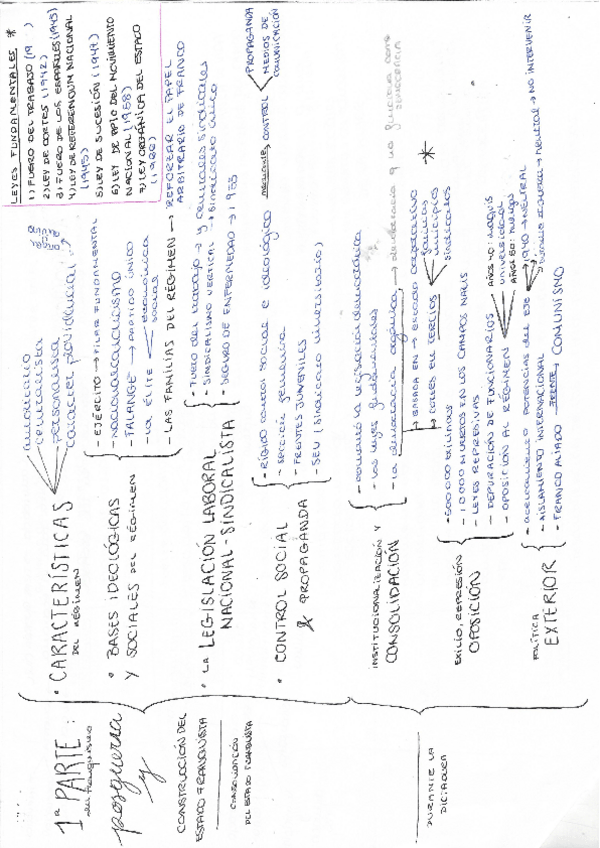 1ª PARTE:
del franquismo
posguerra
y
CONSTRUCCIÓN DEL
ESTADO FRANQUISTA
CONSOLIDACIÓN
DEL ESTADO FRANQUISTA
DURANTE LA
DICTADURA
• CARACTERÍSTICAS
DEL RÉGIMEN
autoritario
centralista
personalista
carácter providencial
• BASES IDEOLÓGICAS
Y SOCIALES DEL RÉGIMEN
- EJÉRCITO → PILAR FUNDAMENTAL
- NACIONALCATOLICISMO
- FALANGE → PARTIDO ÚNICO
- LA ÉLITE económica
social
- LAS FAMILIAS DEL RÉGIMEN → REFORZAR EL PAPEL
ARBITRARIO DE FRANCO
LEYES FUNDAMENTALES *
1) FUERO DEL TRABAJO (19
2) LEY DE CORTES (1942)
3) FUERO DE LOS ESPAÑOLES (1945)
4) LEY DE REFERENDUM NACIONAL
(1945)
5) LEY DE SUCESIÓN (1947)
6) LEY DE PPIO DEL MOVIMIENTO
NACIONAL (1958)
7) LEY ORGÁNICA DEL ESTADO
(1966)
• LA LEGISLACIÓN LABORAL
NACIONAL-SINDICALISTA
- Fuero del trabajo → y centrales sindicales
- SINDICALISMO VERTICAL → Sindicato único
- SEGURO DE ENFERMEDAD → 1953
• CONTROL SOCIAL
& PROPAGANDA
- RÍGIDO control social e ideológico mediante CONTROL
PROPAGANDA
MEDIOS DE
COMUNICACIÓN
- sección femenina
- FRENTES JUVENILES
- SEU (Sindicato universitario)
INSTITUCIONALIZACIÓN Y
CONSOLIDACIÓN
- la legislación democrática
- las leyes fundamentales
- la democracia orgánica → democracia q no funciona como
DEMOCRACIA
→ BASADA EN → estado corporativo
→ CORTES EN TERCIOS
familias
municipios
sindicatos
*
EXILIO, REPRESIÓN
OPOSICIÓN
- 500.000 exilados
- 10.000 MUERTOS EN LOS CAMPOS NAZIS
- LEYES REPRESIVAS
- DEPURACIÓN DE FUNCIONARIOS
- OPOSICIÓN AL RÉGIMEN
AÑOS 40: maquis
universidad
AÑOS 60: huelgas
POLÍTICA
EXTERIOR
- acercamiento POTENCIAS del EJE
1940 → NEUTRAL
NEUTRAL → NO INTERVENIR
- AISLAMIENTO INTERNACIONAL
- FRANCO ALIADO FRENTE COMUNISMO